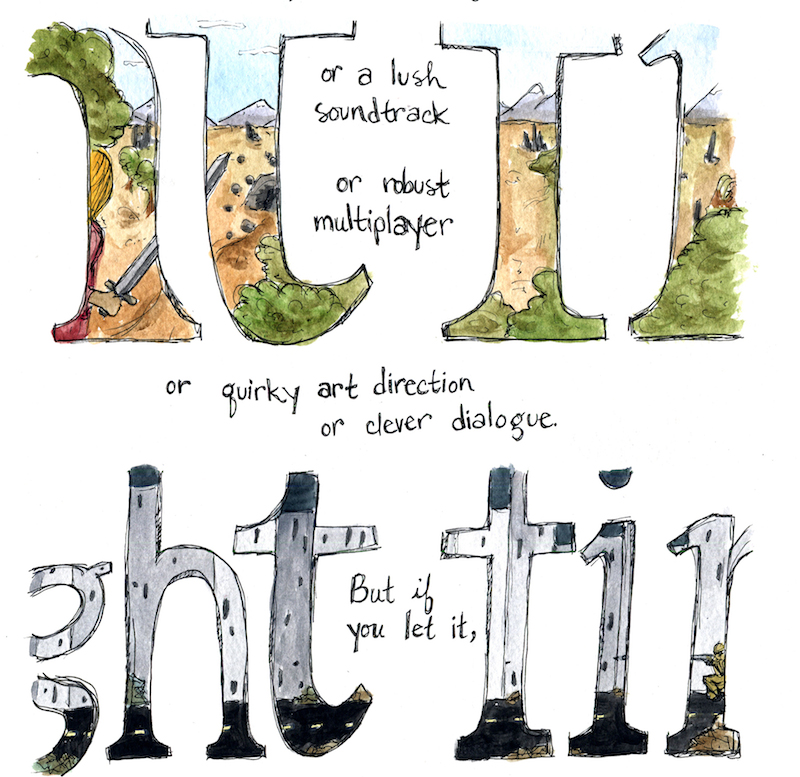 t I
or a lush
soundtrack
or robust
multiplayer
or quirky art direction
or clever dialogue.
ght ti
But if
you let it,